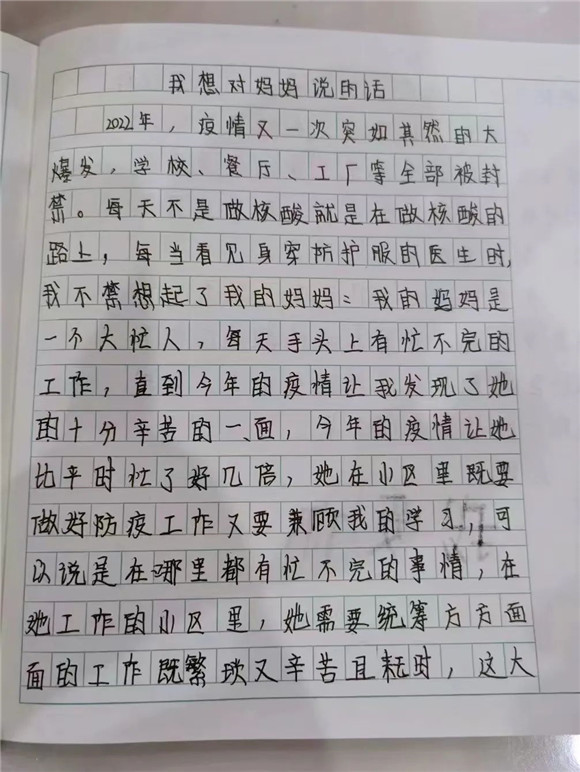 我想对妈妈说的话
2022年，疫情又一次突如其然的大
爆发，学校、餐厅、工厂等全部被封
禁。每天不是做核酸就是在做核酸的
路上，每当看见身穿防护服的医生时，
我不禁想起了我的妈妈：我的妈妈是
一个大忙人，每天手头上有忙不完的
工作，直到今年的疫情让我发现了她
的十分辛苦的一面，今年的疫情让她
比平时忙了好几倍，她在小区里既要
做好防疫工作又要兼顾我的学习，可
以说是在哪里都有忙不完的事情，在
她工作的小区里，她需要统筹方方面
面的工作既繁琐又辛苦且耗时，这大